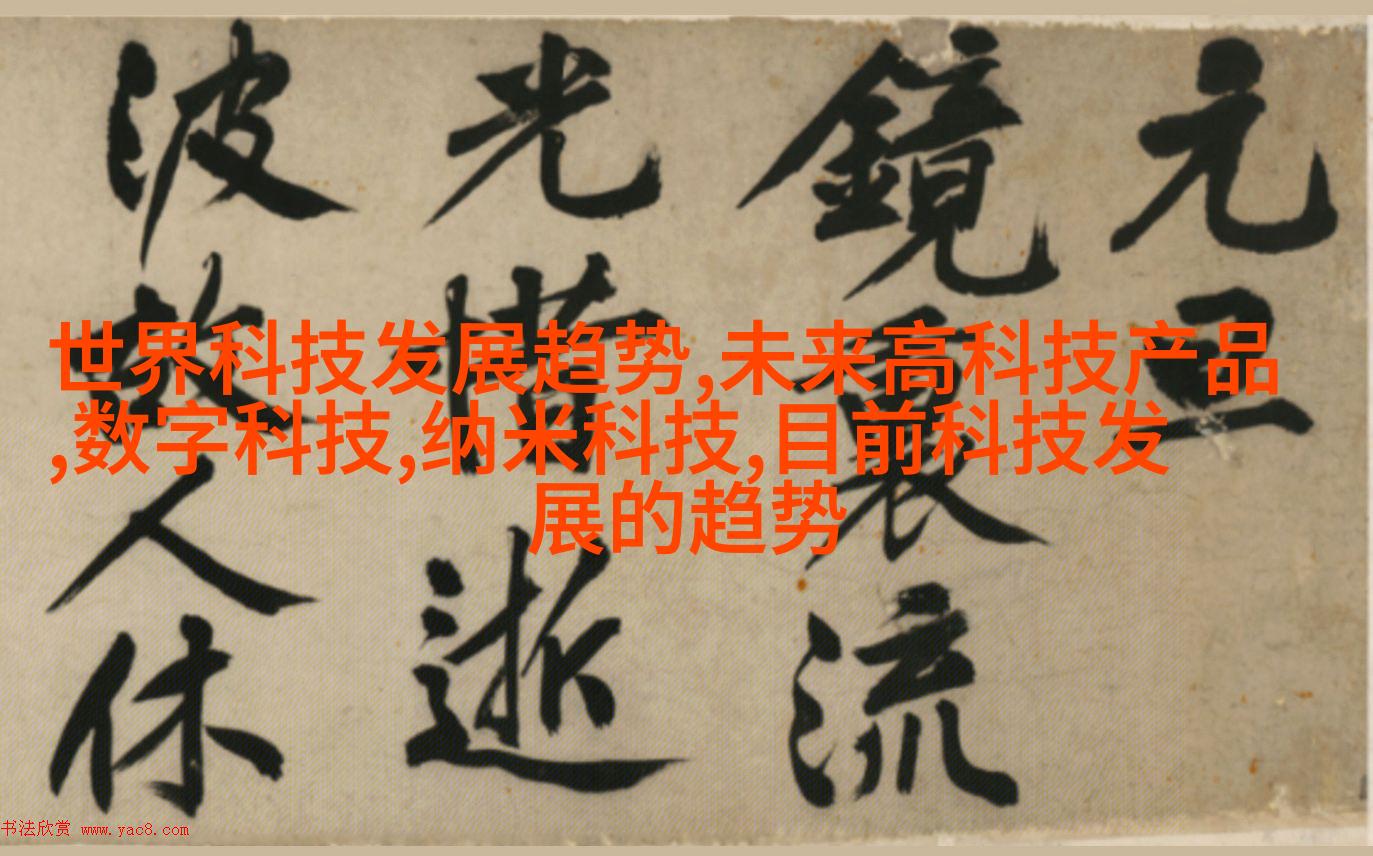 世界科技发展趋势,未来高科技产品
,数字科技,纳米科技,目前科技发
展的趋势
元
鏡裏流
光惜逝
波故人休
书法欣赏 www.yac8.com